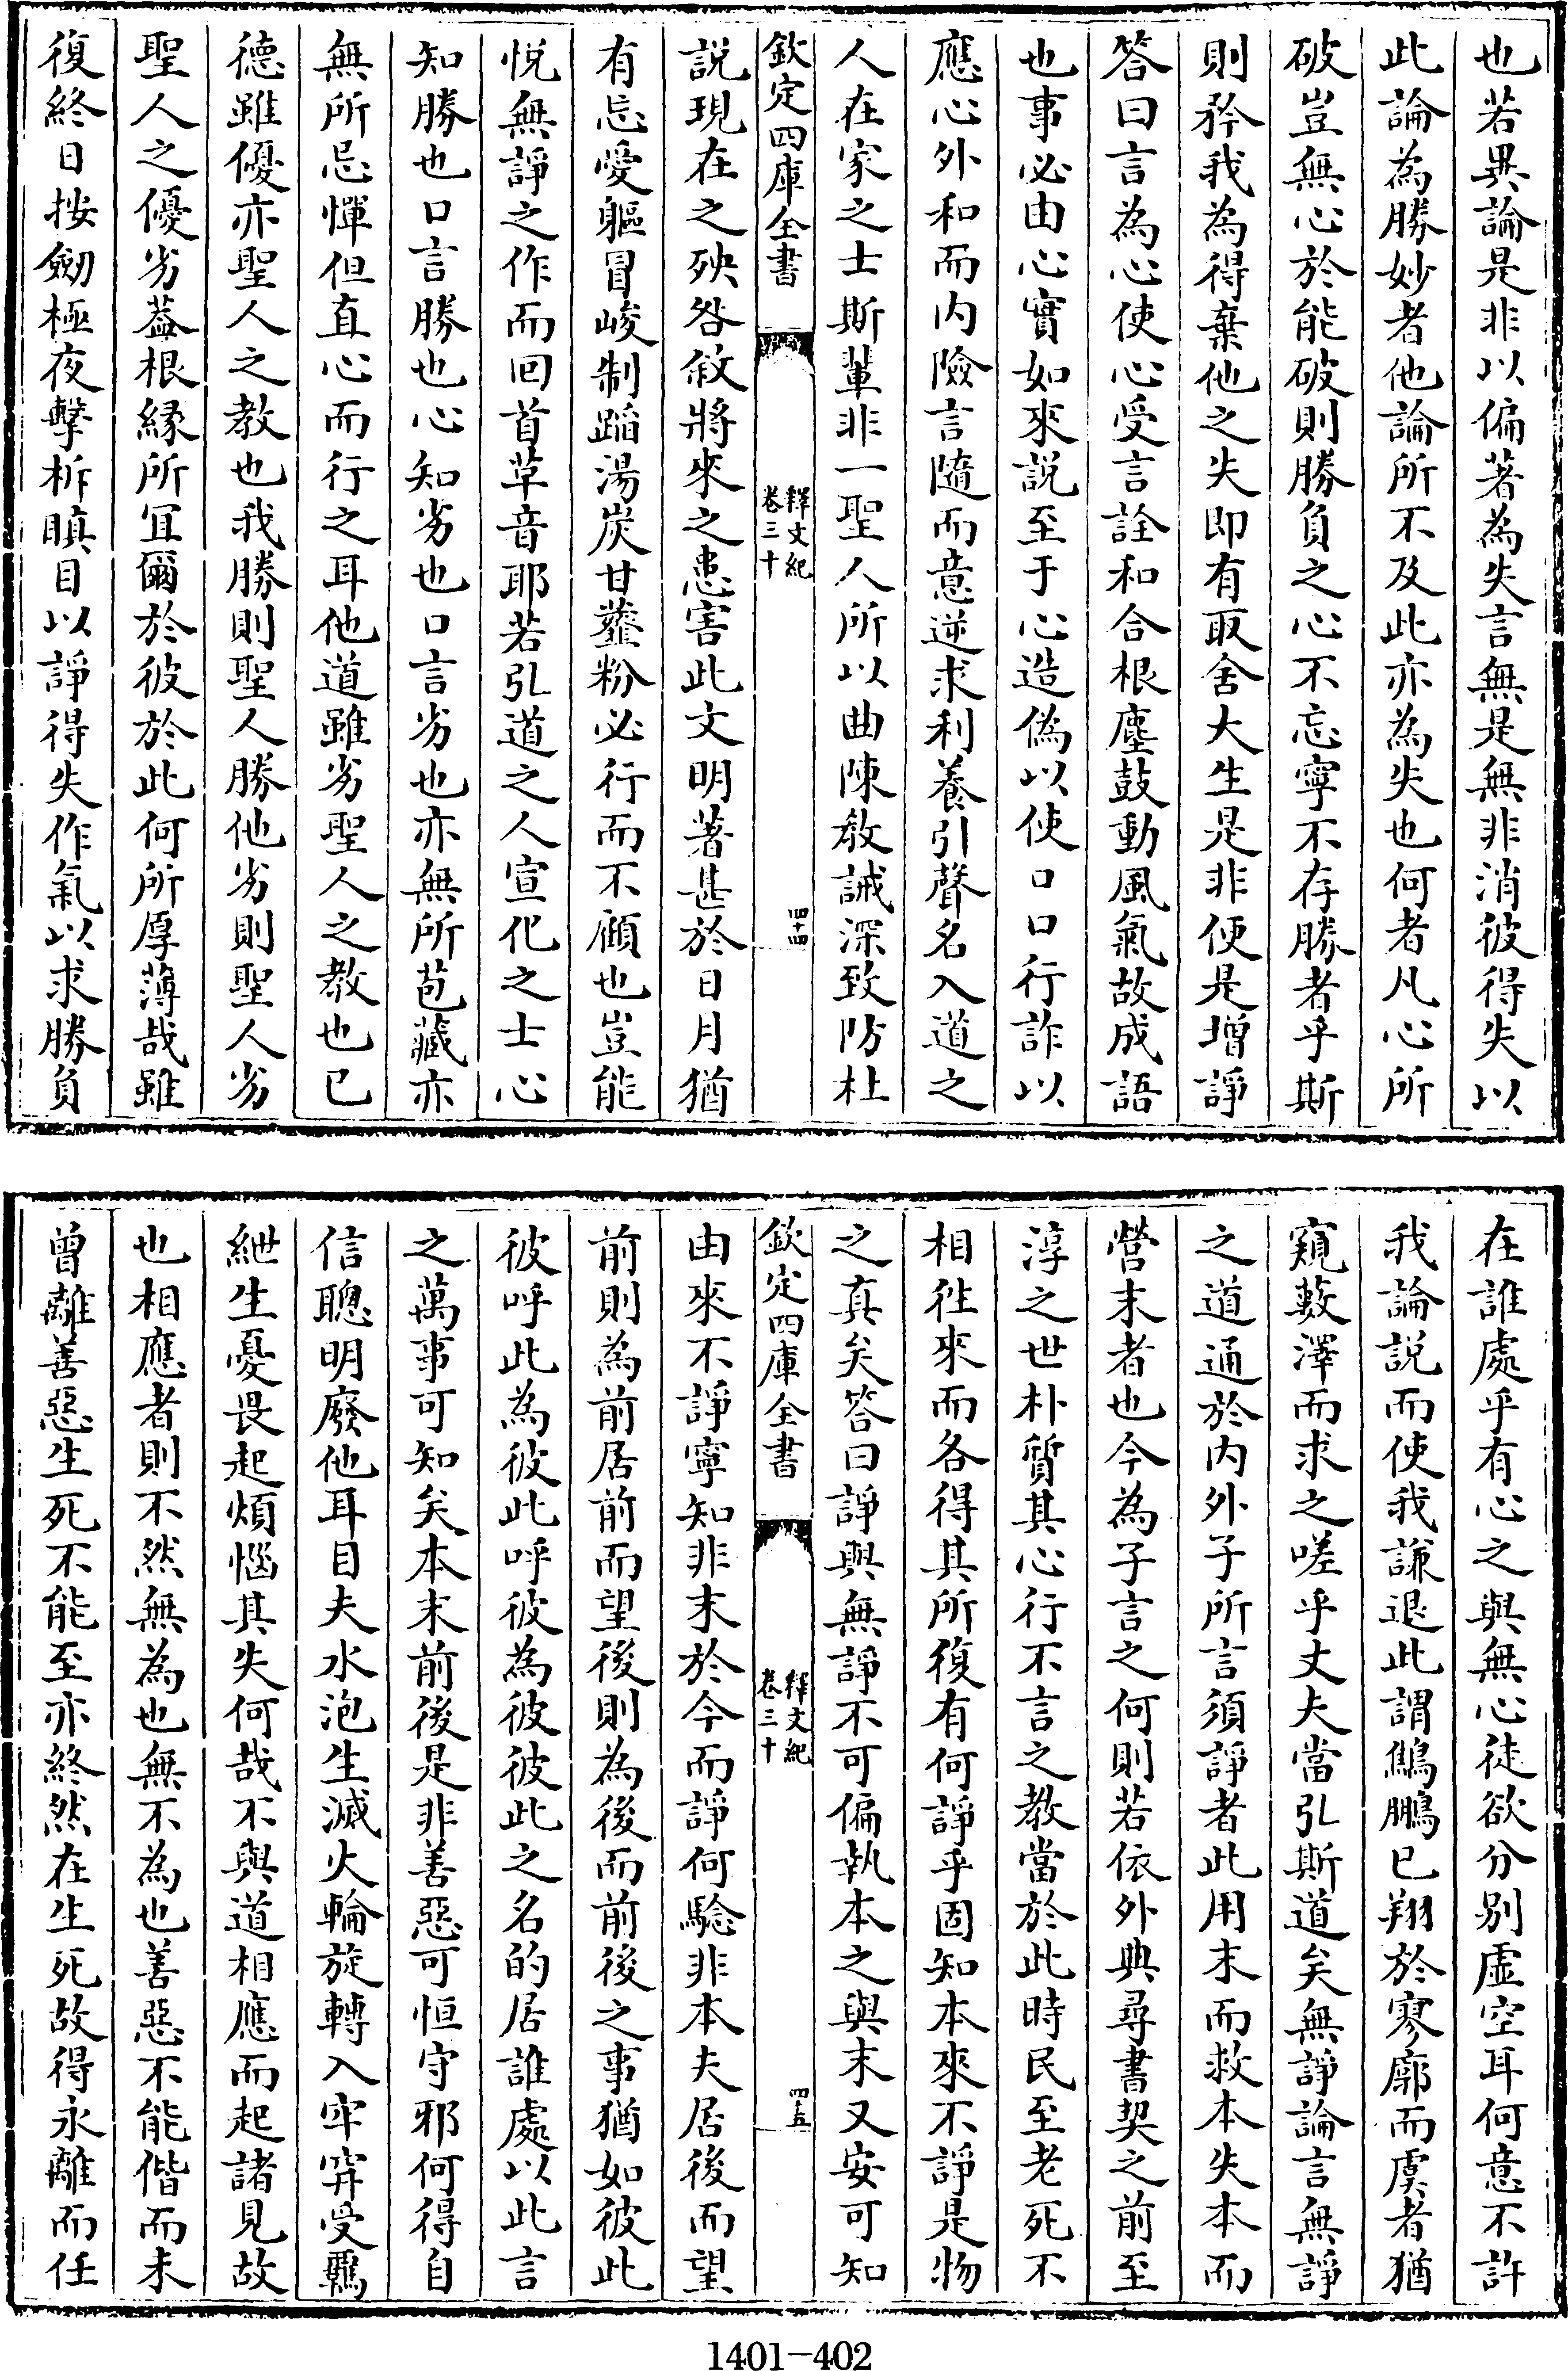 也若異論是非以偏著為失言無是無非消彼得失以
此論為勝妙者他論所不及此亦為失也何者凡心所
破豈無心於能破則勝負之心不忘寧不存勝者乎斯
則矜我為得棄他之失即有取舍大生是非便是增諍
答曰言為心使心受言詮和合根塵鼓動風氣故成語
也事必由心實如來說至于心造偽以使口口行詐以
應心外和而內險言隨而意逆求利養引聲名入道之
人在家之士斯輩非一聖人所以曲陳教誡深致防杜
欽定四庫全書
釋文紀
卷三十
四十四
說現在之殃咎敘將來之患害此文明著甚於日月猶
有忘愛軀冒峻制蹈湯炭甘虀粉必行而不顧也豈能
悅無諍之作而回首革音耶若弘道之人宣化之士心
知勝也口言勝也心知劣也口言劣也亦無所苞藏亦
無所忌憚但直心而行之耳他道雖劣聖人之教也已
德雖優亦聖人之教也我勝則聖人勝他劣則聖人劣
聖人之優劣葢根緣所宜爾於彼於此何所厚薄哉雖
復終日按劒極夜擊柝瞋目以諍得失作氣以求勝負
在誰處乎有心之與無心徒欲分別虛空耳何意不許
我論說而使我謙退此謂鷦鵬已翔於寥廓而虞者猶
窺藪澤而求之嗟乎丈夫當弘斯道矣無諍論言無諍
之道通於內外子所言須諍者此用末而救本失本而
營末者也今為子言之何則若依外典尋書契之前至
淳之世朴質其心行不言之教當於此時民至老死不
相往來而各得其所復有何諍乎固知本來不諍是物
之真矣答曰諍與無諍不可偏執本之與末又安可知
欽定四庫全書
釋文紀
卷三十
四十五
由來不諍寧知非末於今而諍何驗非本夫居後而望
前則為前居前而望後則為後而前後之事猶如彼此
彼呼此為彼此呼彼為彼彼此之名的居誰處以此言
之萬事可知矣本末前後是非善惡可恒守邪何得自
信聰明廢他耳目夫水泡生滅火輪旋轉入牢穽受羈
紲生憂畏起煩惱其失何哉不與道相應而起諸見故
也相應者則不然無為也無不為也善惡不能偕而未
曾離善惡生死不能至亦終然在生死故得永離而任
1401-402